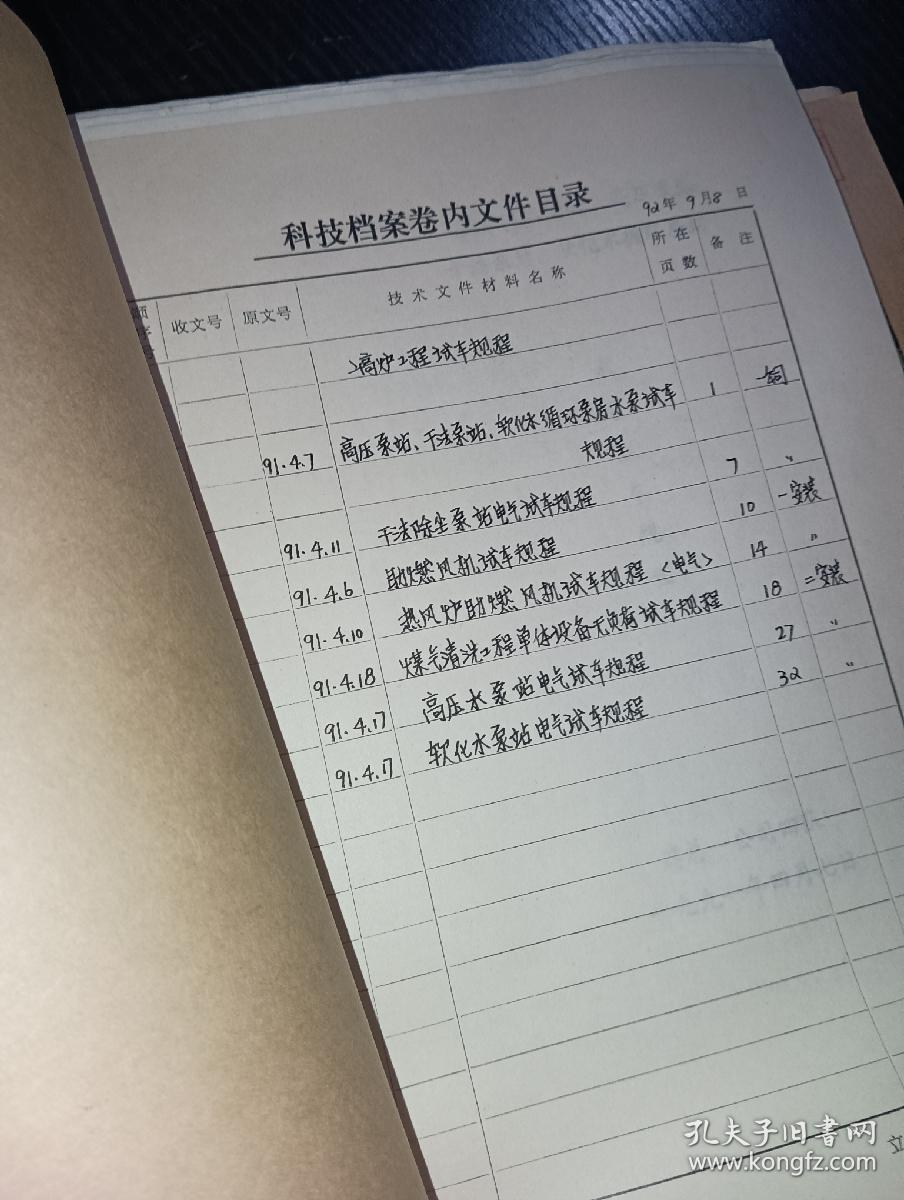 科技档案卷内文件目录
92年9月8日
收文号 原文号 技术文件材料名称 所在页数 备注
高炉工程试车规程
91.4.7 高压泵站、干法泵站、软化水循环泵房水泵试车 1
规程
91.4.11 干法除尘泵站电气试车规程 7 〃
91.4.6 助燃风机试车规程 10 一安装
91.4.10 热风炉助燃风机试车规程（电气） 14 〃
91.4.18 煤气清洗工程单体设备无负荷试车规程 18 二安装
91.4.17 高压水泵站电气试车规程 27 〃
91.4.17 软化水泵站电气试车规程 32 〃
立
孔夫子旧书网
www.kongfz.com